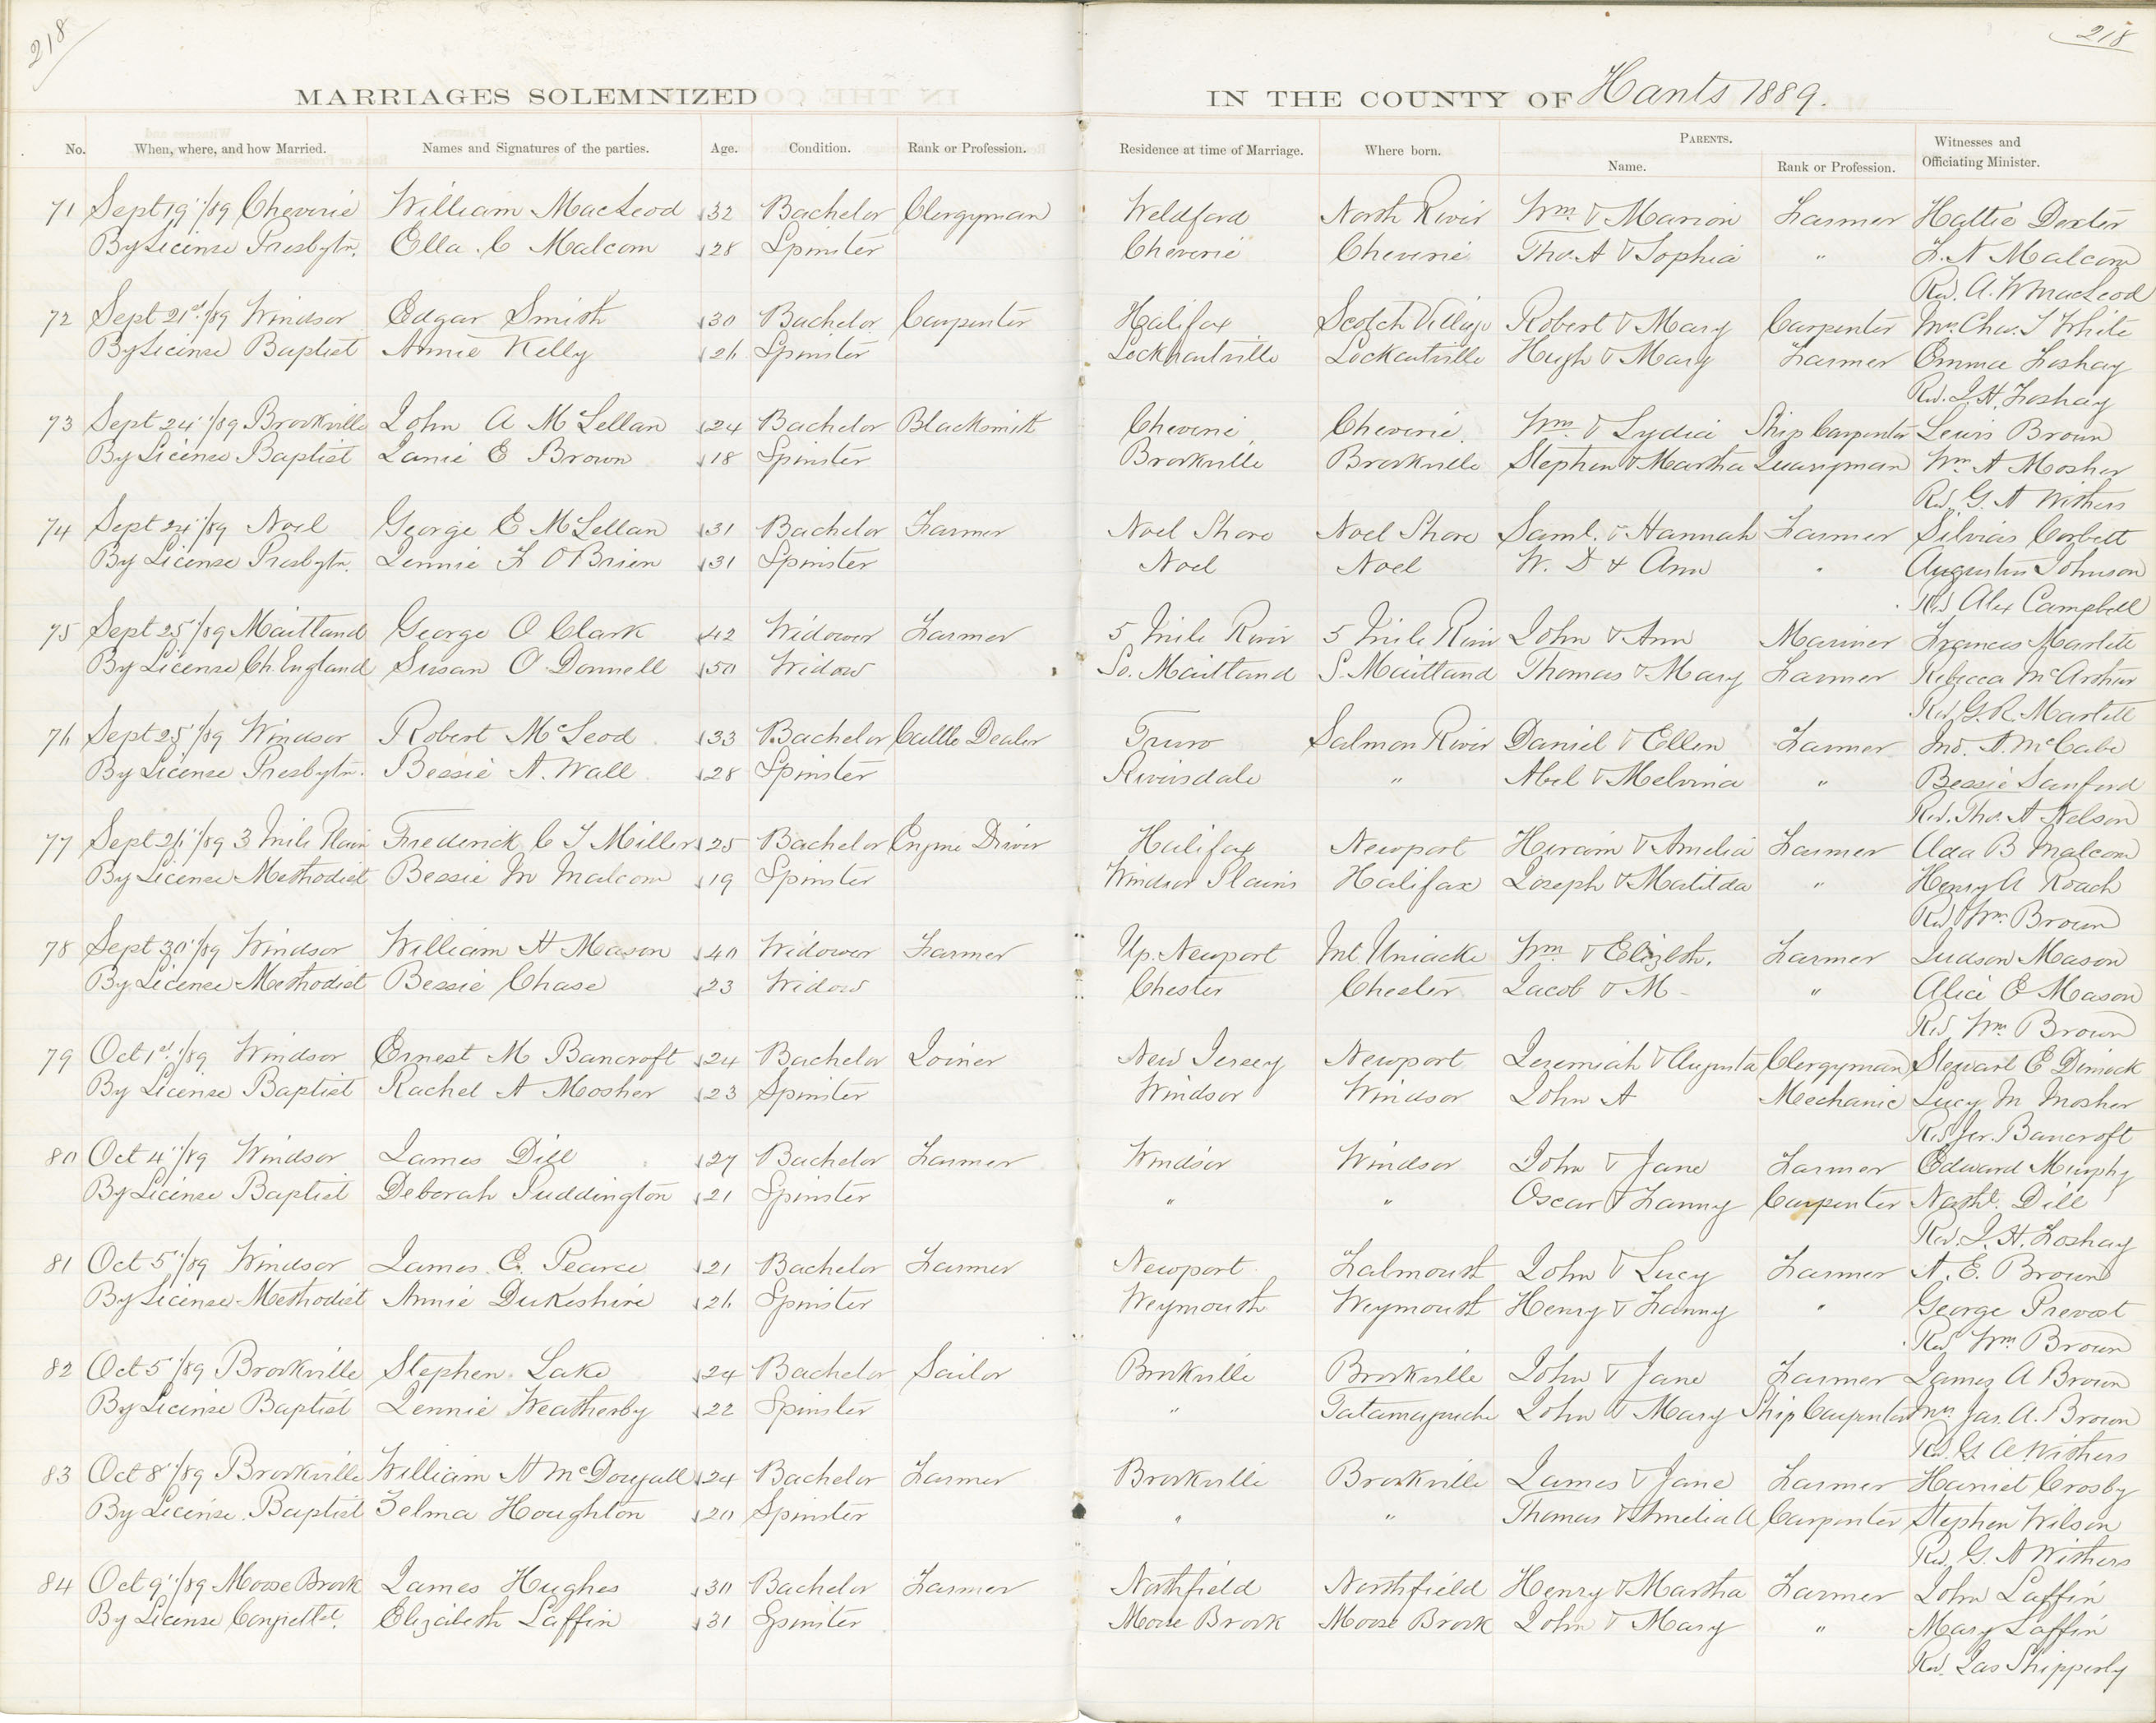 218
218
MARRIAGES SOLEMNIZED IN THE COUNTY OF Hants 1889.
No. When, where, and how Married. Names and Signatures of the parties. Age. Condition. Rank or Profession. Residence at time of Marriage. Where born. PARENTS. Name. Rank or Profession. Witnesses and Officiating Minister.
71 Sept 19"/89 Cheverie William MacLeod 32 Bachelor Clergyman Weldford North River Wm & Marion Farmer Hattie Dexter
By License Presbytn. Ella C Malcom 28 Spinster Cheverie Cheverie Tho. A & Sophia " F. N Malcom
Rev. A. W MacLeod
72 Sept 21st/89 Windsor Edgar Smith 30 Bachelor Carpenter Halifax Scotch Village Robert & Mary Carpenter Mrs. Chas. T White
By License Baptist Annie Kelly 26 Spinster Lockhartville Lockartville Hugh & Mary Farmer Emma Foshay
Rev. J. H. Foshay
73 Sept 24"/89 Brookville John A McLellan 24 Bachelor Blacksmith Cheverie Cheverie Wm & Lydia Ship Carpenter Lewis Brown
By License Baptist Janie E Brown 18 Spinster Brookville Brookville Stephen & Martha Quarryman Wm A Mosher
Rev. G. A Withers
74 Sept 24"/89 Noel George E McLellan 31 Bachelor Farmer Noel Shore Noel Shore Saml. & Hannah Farmer Silvias Corbett
By License Presbytn. Jennie F O'Brien 31 Spinster Noel Noel W. D & Ann " Johnson
Rev Alex Campbell
75 Sept 25"/89 Maitland George O Clark 42 Widower Farmer 5 Mile River 5 Mile River John & Ann Mariner Frances Martell
By License Ch. England Susan O'Donnell 50 Widow So. Maitland S. Maitland Thomas & Mary Farmer Rebecca McArthur
Rev. G. R. Martell
76 Sept 25"/89 Windsor Robert McLeod 33 Bachelor Cattle Dealer Truro Salmon River Daniel & Ellen Farmer Jno. A. McCabe
By License Presbytn. Bessie A. Wall 28 Spinster Riversdale " Abel & Melvina " Bessie Sanford
Rev. Tho. A Nelson
77 Sept 26"/89 3 Mile Plain Frederick C T Miller 25 Bachelor Engine Driver Halifax Newport Hiram & Amelia Farmer Ada B Malcom
By License Methodist Bessie M Malcom 19 Spinster Windsor Plains Halifax Joseph & Matilda " Henry A Roach
Rev. Wm Brown
78 Sept 30"/89 Windsor William H Mason 40 Widower Farmer Up. Newport Mt Uniacke Wm & Elizbth. Farmer Judson Mason
By Licence Methodist Bessie Chase 23 Widow Chester Chester Jacob & M - " Alice E Mason
Rev. Wm Brown
79 Oct 1st/89 Windsor Ernest M Bancroft 24 Bachelor Joiner New Jersey Newport Jeremiah & Augusta Clergyman Stewart E Dimock
By License Baptist Rachel A Mosher 23 Spinster Windsor Windsor John A Mechanic Lucy M Mosher
Rev Jer. Bancroft
80 Oct 4"/89 Windsor James Dill 27 Bachelor Farmer Windsor Windsor John & Jane Farmer Edward Murphy
By License Baptist Deborah Puddington 21 Spinster " " Oscar & Fanny Carpenter Nathl. Dill
Rev. J. H. Foshay
81 Oct 5"/89 Windsor James E. Pearce 21 Bachelor Farmer Newport Falmouth John & Lucy Farmer A. E. Brown
By License Methodist Annie Dukeshire 26 Spinster Weymouth Weymouth Henry & Fanny " George Prevost
Rev Wm Brown
82 Oct 5"/89 Brookville Stephen Lake 24 Bachelor Sailor Brookville Brookville John & Jane Farmer James A Brown
By License Baptist Jennie Weatherby 22 Spinster " Tatamagouche John & Mary Ship Carpenter Mrs Jas. A. Brown
Rev. G A Withers
83 Oct 8"/89 Brookville William A McDougall 24 Bachelor Farmer Brookville Brookville James & Jane Farmer Harriet Crosby
By License Baptist Zelma Houghton 20 Spinster " " Thomas & Amelia A Carpenter Stephen Wilson
Rev. G. A Withers
84 Oct 9"/89 Moose Brook James Hughes 30 Bachelor Farmer Northfield Northfield Henry & Martha Farmer John Laffin
By License Elizabeth Laffin 31 Spinster Moose Brook Moose Brook John & Mary " Mary Laffin
Rev. Jas Shipperly